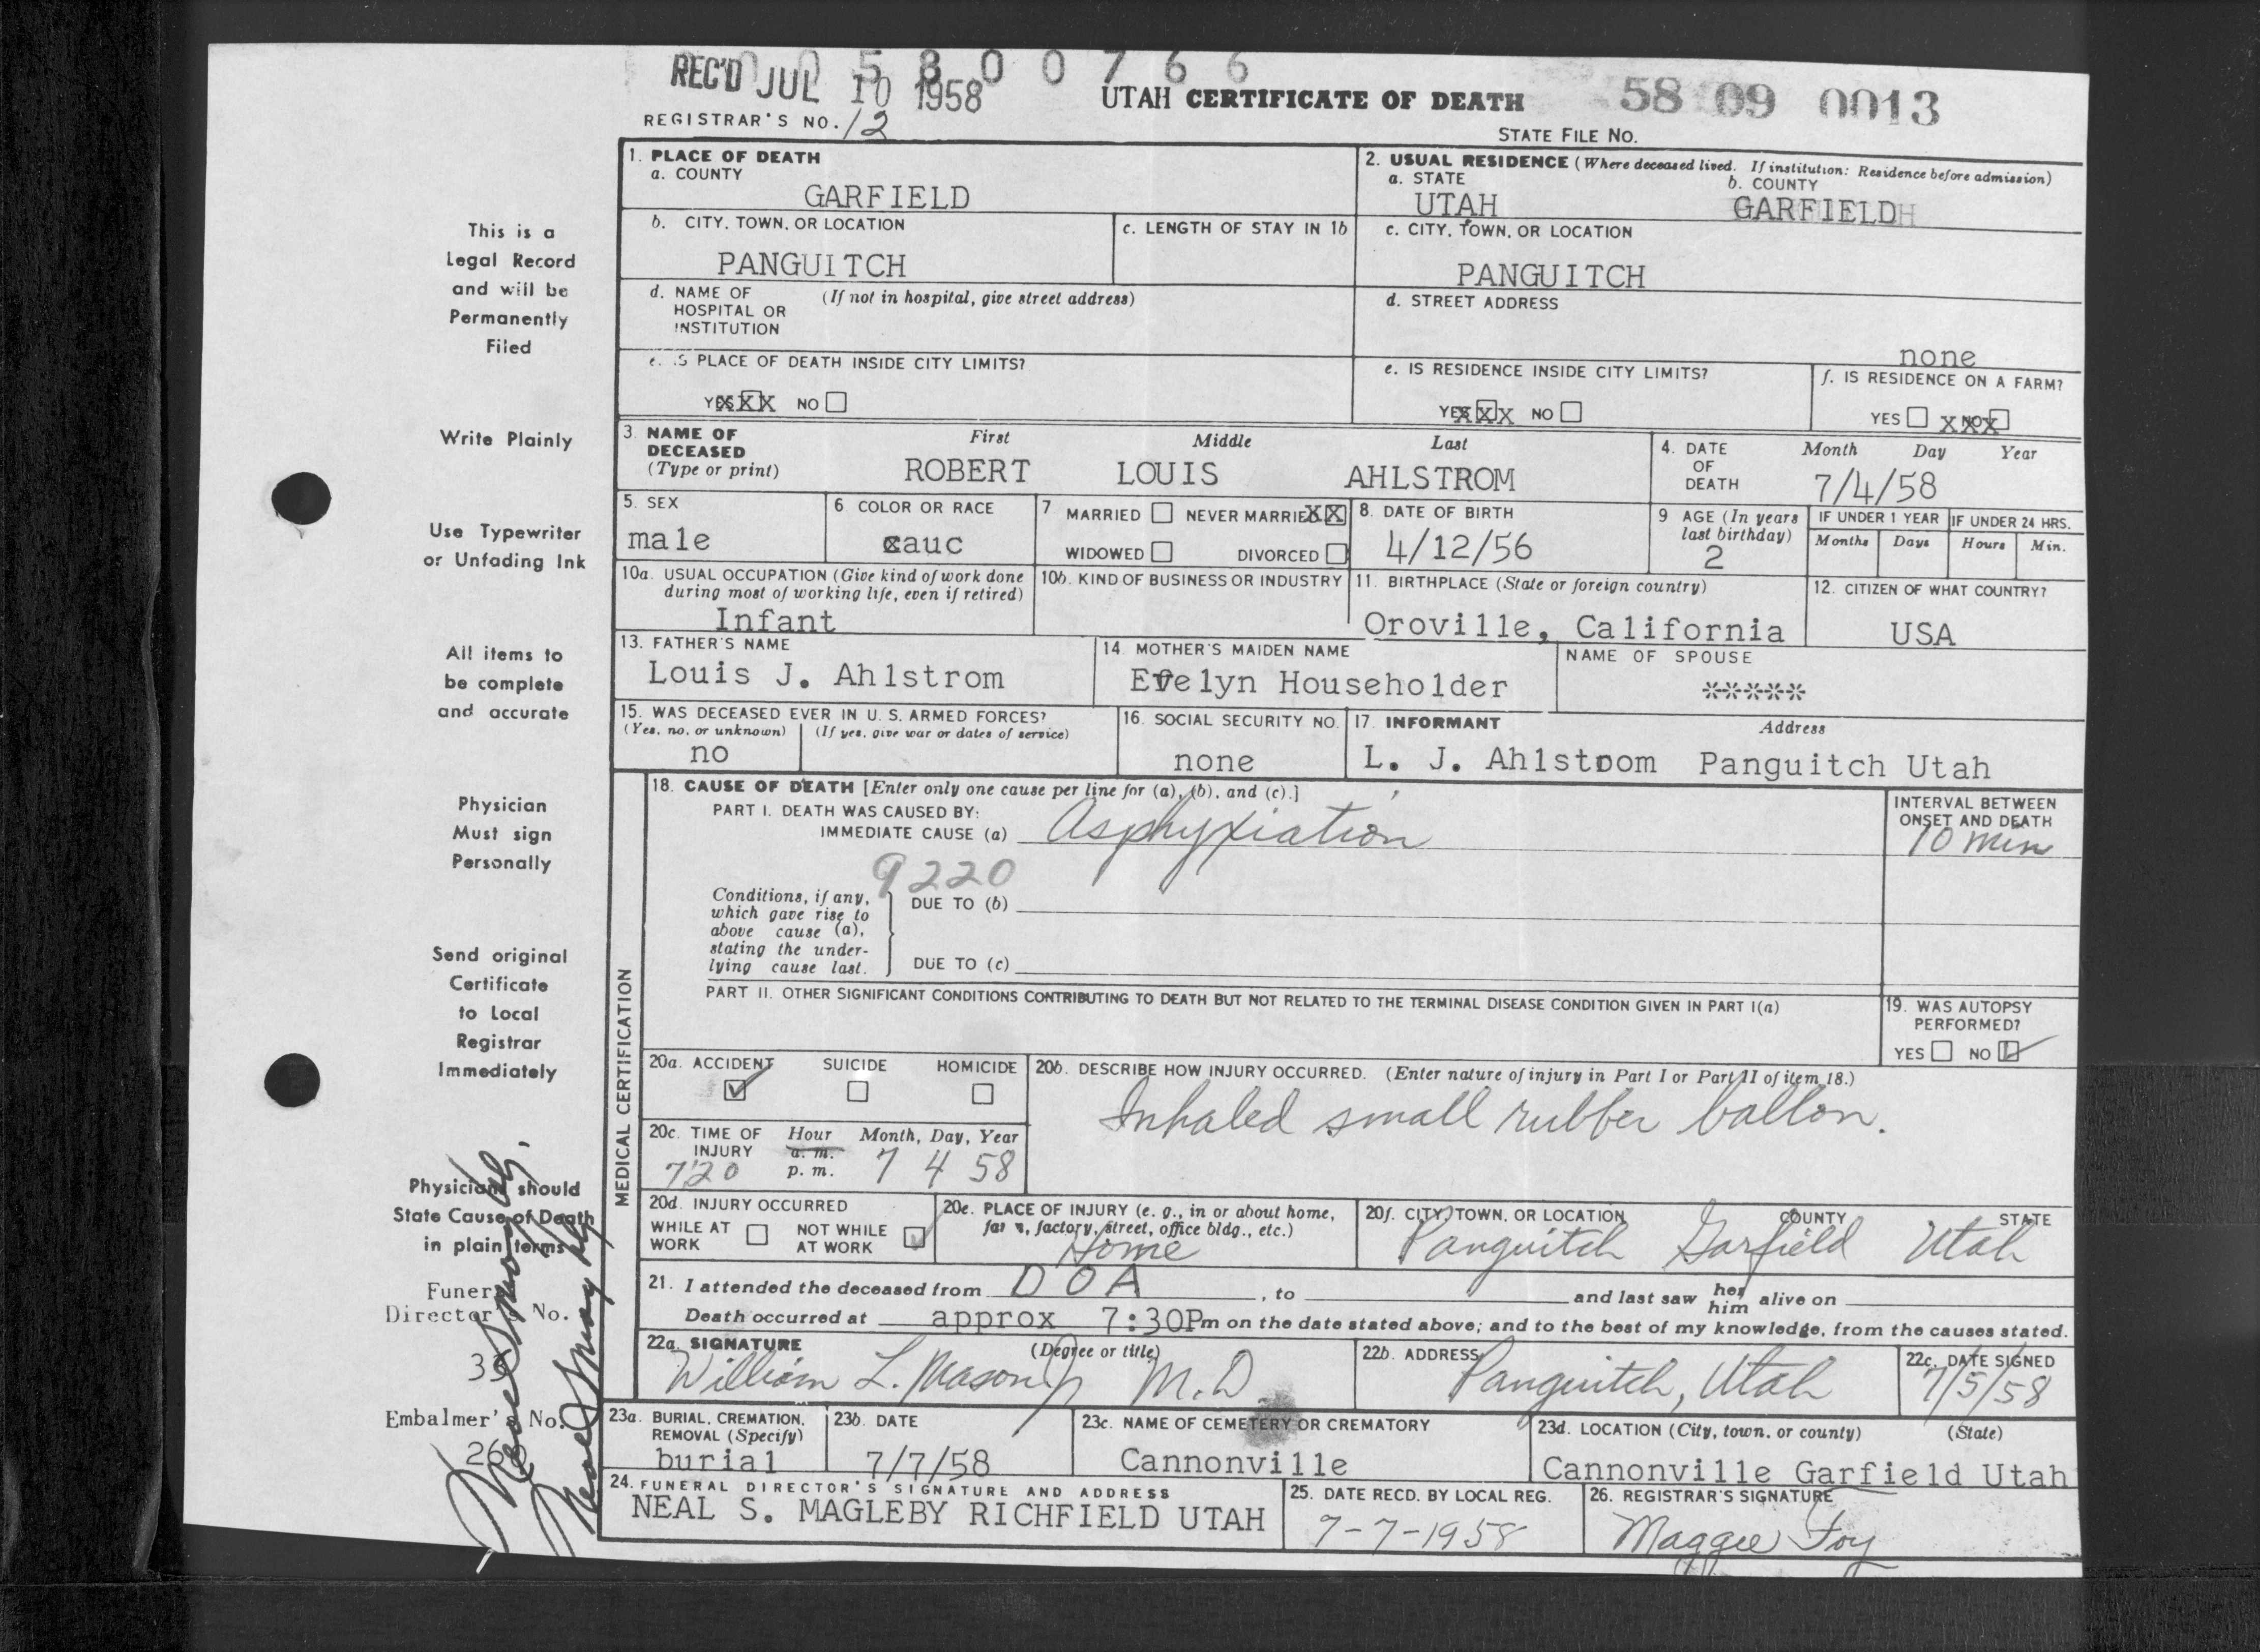 0 0 5 8 0 0 7 6 6
REC'D JUL 10 1958
UTAH CERTIFICATE OF DEATH
58 09 0013
REGISTRAR'S NO. 12
STATE FILE NO.
1. PLACE OF DEATH
a. COUNTY
GARFIELD
2. USUAL RESIDENCE (Where deceased lived. If institution: Residence before admission)
a. STATE b. COUNTY
UTAH GARFIELD
b. CITY, TOWN, OR LOCATION
PANGUITCH
c. LENGTH OF STAY IN 1b
c. CITY, TOWN, OR LOCATION
PANGUITCH
d. NAME OF (If not in hospital, give street address)
HOSPITAL OR
INSTITUTION
d. STREET ADDRESS
none
e. IS PLACE OF DEATH INSIDE CITY LIMITS?
YES XXX NO
e. IS RESIDENCE INSIDE CITY LIMITS?
YES XXX NO
f. IS RESIDENCE ON A FARM?
YES XXX NO
3. NAME OF DECEASED (Type or print)
First Middle Last
ROBERT LOUIS AHLSTROM
4. DATE OF DEATH
Month Day Year
7/4/58
5. SEX
male
6 COLOR OR RACE
cauc
7 MARRIED NEVER MARRIED XX
WIDOWED DIVORCED
8. DATE OF BIRTH
4/12/56
9 AGE (In years last birthday)
2
IF UNDER 1 YEAR
Months Days
IF UNDER 24 HRS.
Hours Min.
10a. USUAL OCCUPATION (Give kind of work done
during most of working life, even if retired)
Infant
10b. KIND OF BUSINESS OR INDUSTRY
11. BIRTHPLACE (State or foreign country)
Oroville, California
12. CITIZEN OF WHAT COUNTRY?
USA
13. FATHER'S NAME
Louis J. Ahlstrom
14. MOTHER'S MAIDEN NAME
Evelyn Householder
NAME OF SPOUSE
*****
15. WAS DECEASED EVER IN U. S. ARMED FORCES?
(Yes, no, or unknown) (If yes, give war or dates of service)
no
16. SOCIAL SECURITY NO.
none
17. INFORMANT Address
L. J. Ahlstrom Panguitch Utah
MEDICAL CERTIFICATION
18. CAUSE OF DEATH [Enter only one cause per line for (a), (b), and (c).]
PART I. DEATH WAS CAUSED BY:
IMMEDIATE CAUSE (a) Asphyxiation
INTERVAL BETWEEN
ONSET AND DEATH
10 min
9220
Conditions, if any,
which gave rise to
above cause (a),
stating the under-
lying cause last.
DUE TO (b)
DUE TO (c)
PART II. OTHER SIGNIFICANT CONDITIONS CONTRIBUTING TO DEATH BUT NOT RELATED TO THE TERMINAL DISEASE CONDITION GIVEN IN PART I(a)
19. WAS AUTOPSY
PERFORMED?
YES NO
20a. ACCIDENT SUICIDE HOMICIDE
20b. DESCRIBE HOW INJURY OCCURRED. (Enter nature of injury in Part I or Part II of item 18.)
Inhaled small rubber ballon.
20c. TIME OF INJURY
Hour Month, Day, Year
a. m.
720 p. m. 7 4 58
20d. INJURY OCCURRED
WHILE AT WORK NOT WHILE AT WORK
20e. PLACE OF INJURY (e. g., in or about home,
farm, factory, street, office bldg., etc.)
Home
20f. CITY, TOWN, OR LOCATION COUNTY STATE
Panguitch Garfield Utah
21. I attended the deceased from DOA, to and last saw her him alive on
Death occurred at approx 7:30Pm on the date stated above; and to the best of my knowledge, from the causes stated.
22a. SIGNATURE (Degree or title)
William L. Mason Jr M.D.
22b. ADDRESS
Panguitch, Utah
22c. DATE SIGNED
7/5/58
23a. BURIAL, CREMATION,
REMOVAL (Specify)
burial
23b. DATE
7/7/58
23c. NAME OF CEMETERY OR CREMATORY
Cannonville
23d. LOCATION (City, town, or county) (State)
Cannonville Garfield Utah
24. FUNERAL DIRECTOR'S SIGNATURE AND ADDRESS
NEAL S. MAGLEBY RICHFIELD UTAH
25. DATE RECD. BY LOCAL REG.
7-7-1958
26. REGISTRAR'S SIGNATURE
Maggie Foy
This is a
Legal Record
and will be
Permanently
Filed
Write Plainly
Use Typewriter
or Unfading Ink
All items to
be complete
and accurate
Physician
Must sign
Personally
Send original
Certificate
to Local
Registrar
Immediately
Physician should
State Cause of Death
in plain terms
Funeral
Director's No.
33
Embalmer's No.
Neal S Magleby
Neal S Magleby